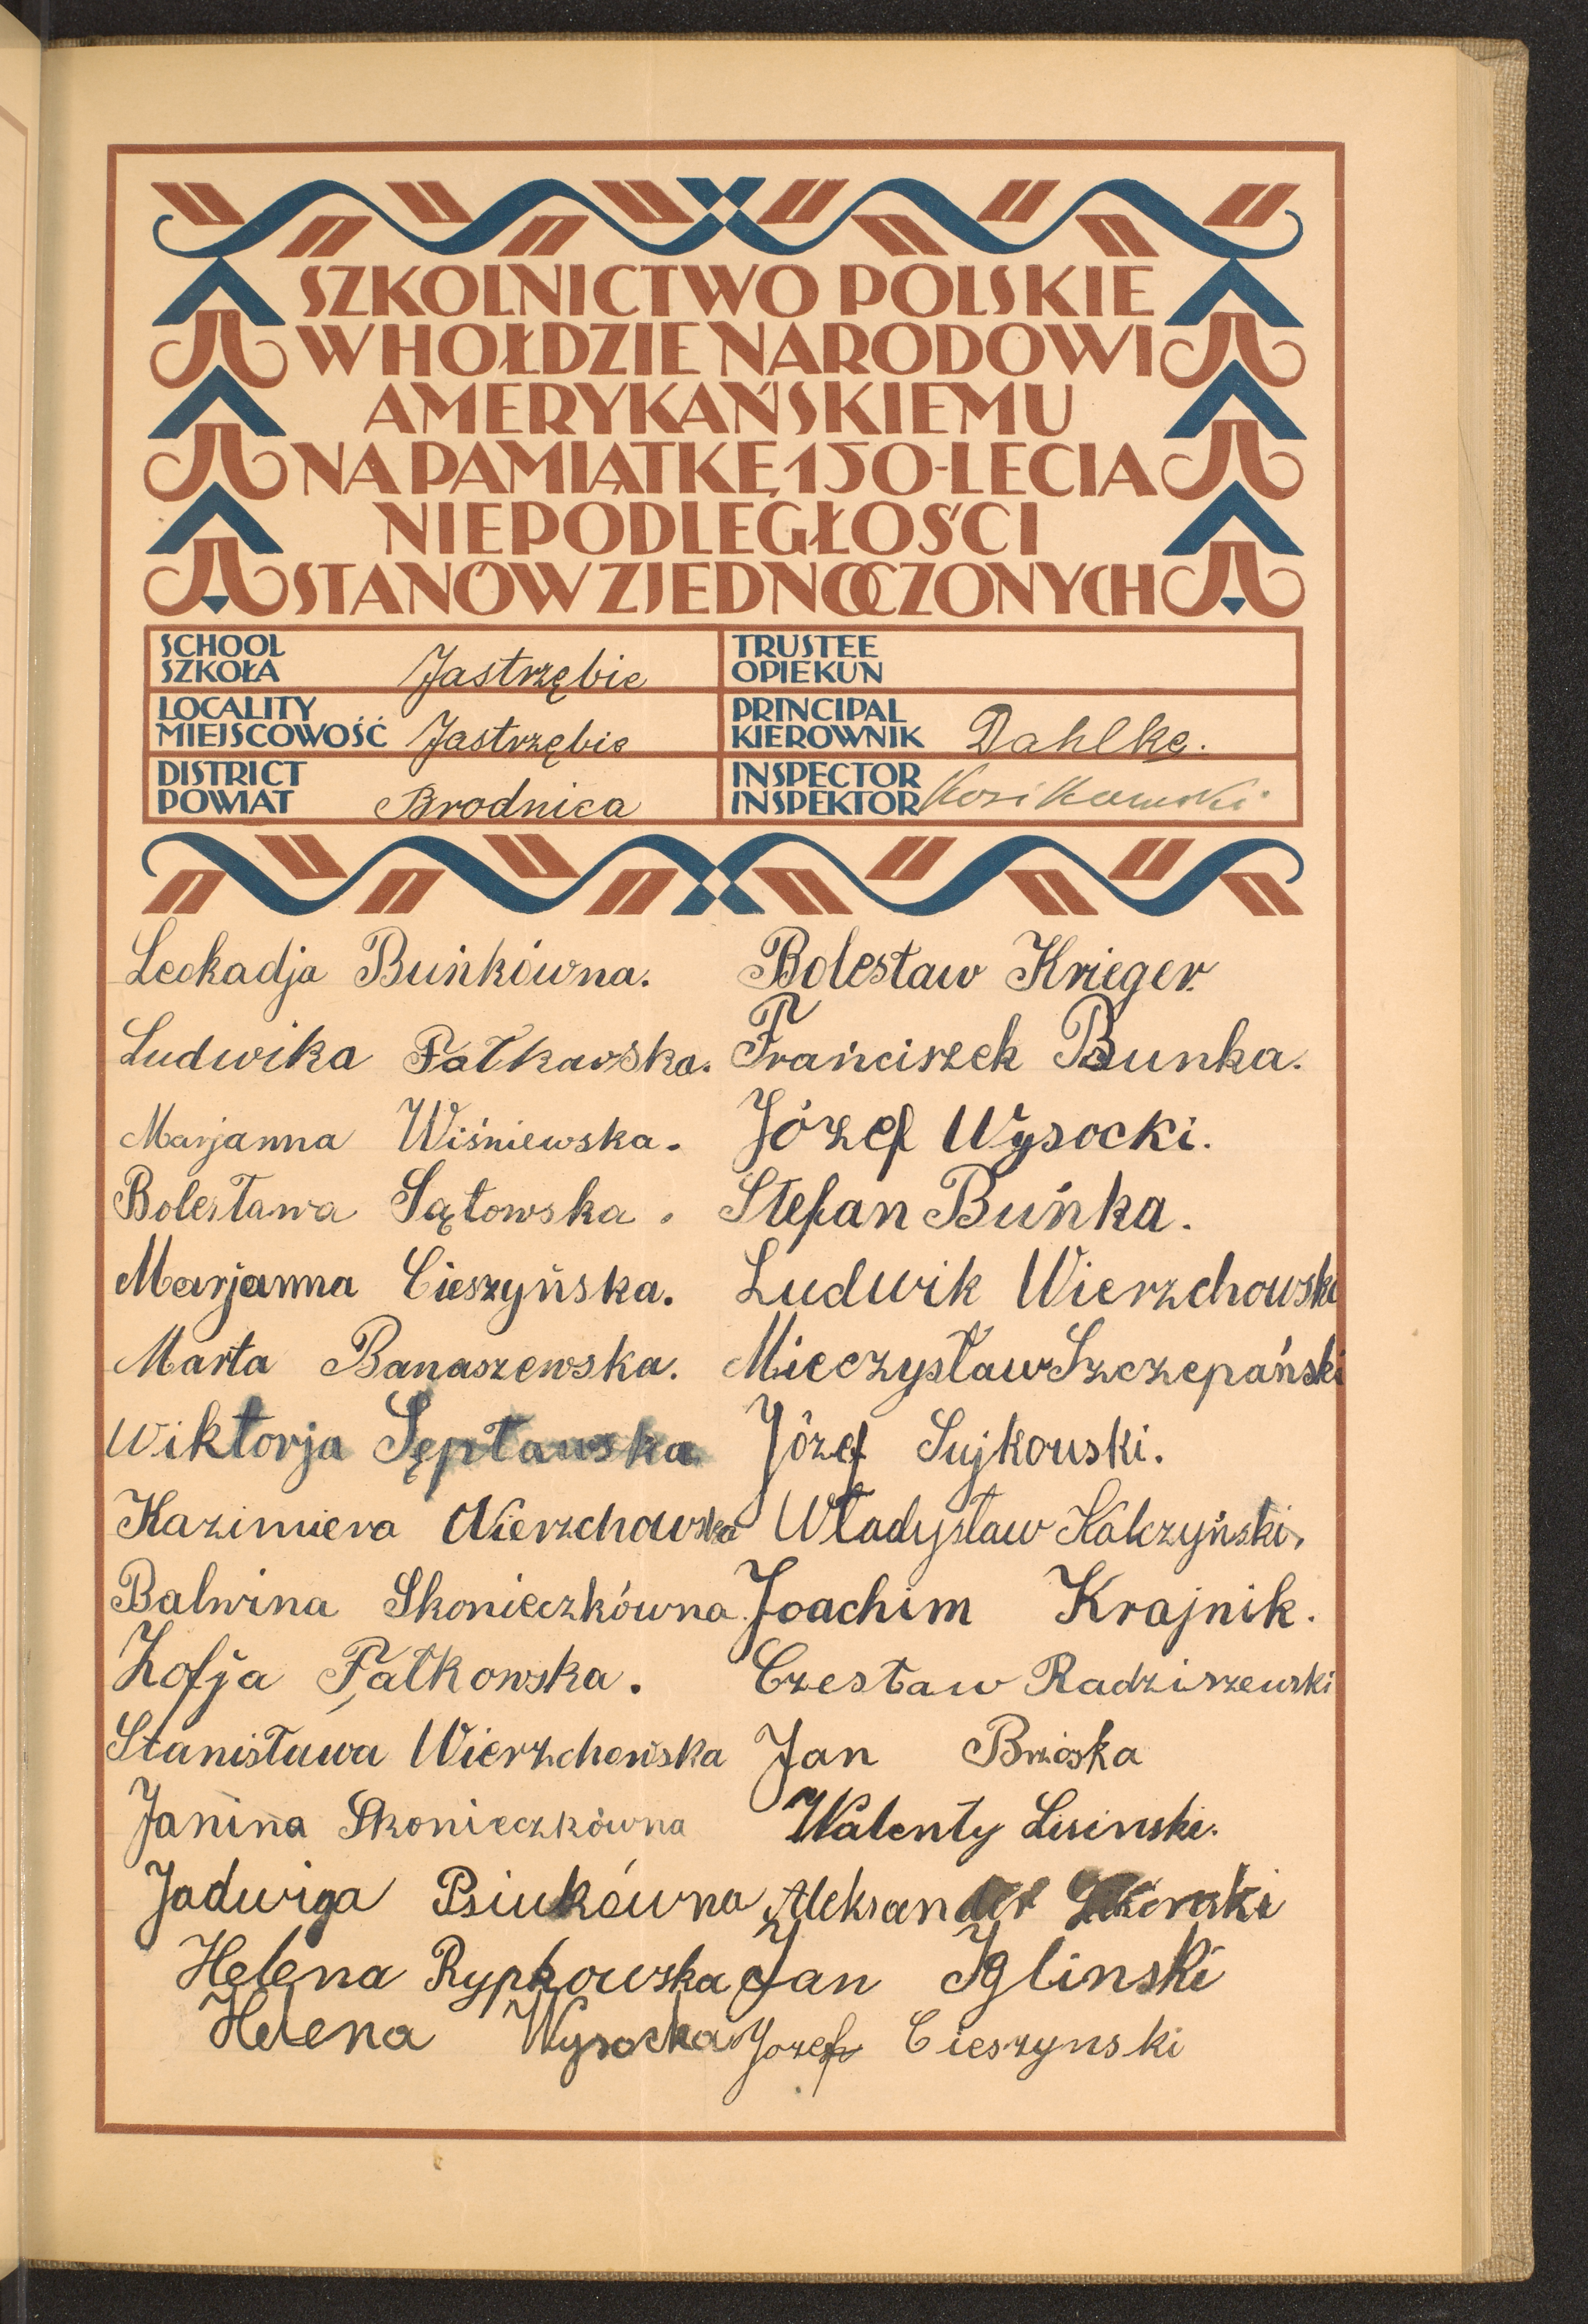 SZKOLNICTWO POLSKIE
W HOŁDZIE NARODOWI
AMERYKAŃSKIEMU
NA PAMIĄTKĘ 150-LECIA
NIEPODLEGŁOŚCI
STANÓW ZJEDNOCZONYCH
SCHOOL
SZKOŁA
Jastrzębie
TRUSTEE
OPIEKUN
LOCALITY
MIEJSCOWOŚĆ
Jastrzębie
PRINCIPAL
KIEROWNIK
Dahlke.
DISTRICT
POWIAT
Brodnica
INSPECTOR
INSPEKTOR
Leokadja Buńkówna.
Ludwika Fałkawska.
Marjanna Wiśniewska.
Bolesława Sątowska.
Marjanna Cieszyńska.
Marta Banaszewska.
Wiktorja Sępławska
Kazimiera Wierzchowska
Balwina Skonieczkówna.
Zofja Fałkowska.
Stanisława Wierzchowska
Janina Skonieczkówna
Jadwiga Psiukówna
Helena Rypkowska
Helena Wysocka
Bolesław Krieger.
Frańciszek Bunka.
Józef Wysocki.
Stefan Buńka.
Ludwik Wierzchowski
Mieczysław Szczepański
Józef Sujkowski.
Władysław Kalczyński.
Joachim Krajnik.
Czesław Radziszewski
Jan Brzóska
Walenty Lisinski.
Aleksander
Jan Iglinski
Jozef Cieszynski